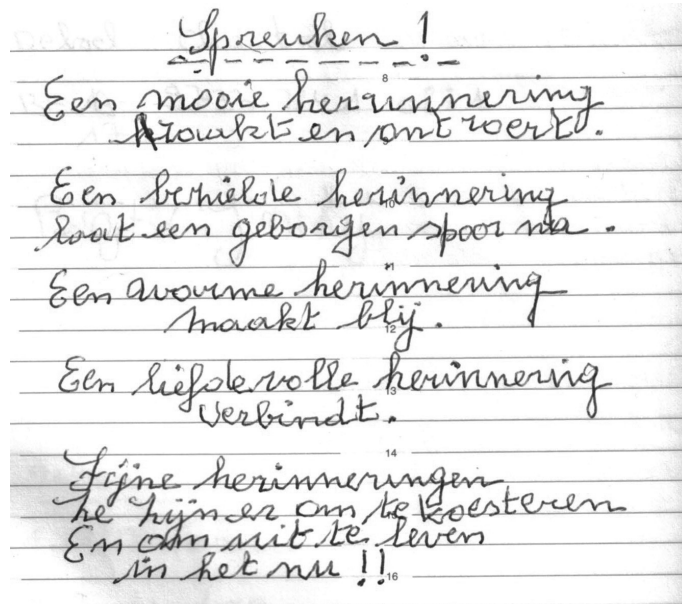 Spreuken !
8
Een mooie herinnering
kraakt en ontroert.
Een
herinnering
10
laat een geborgen spoor na.
11
Een warme herinnering
maakt blij.
12
Een liefdevolle herinnering
13
verbindt.
14
Fijne herinneringen
ze zijn er om te koesteren
En om uit te leven
in het nu !!
16